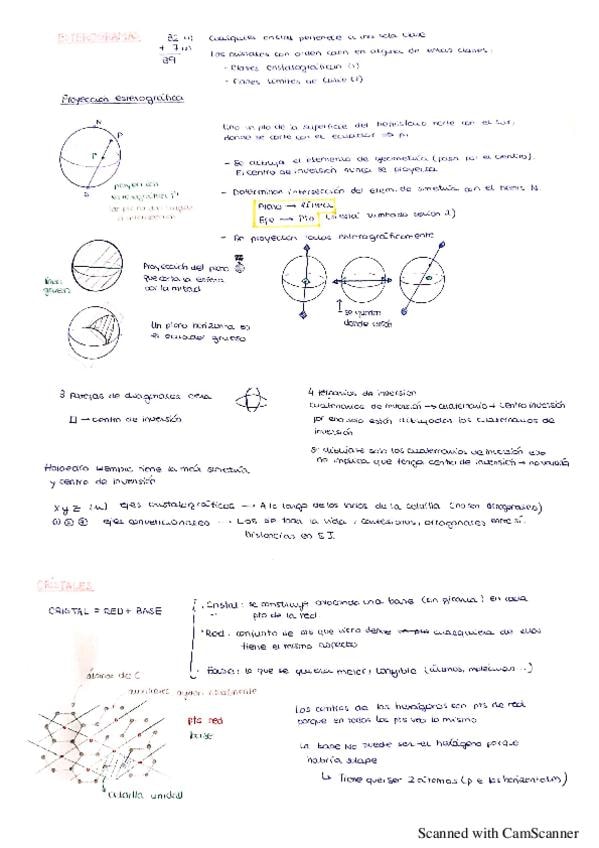 32 (1)
+ 7 (1)
39
Cualquier cristal pertenece a una sola clase
Los cristales con orden caen en alguna de estas clases:
- Clases cristalográficas (1)
- Clases límites de Curie (1)
Proyección estereográfica
N
P
P
S
proyección
estereográfica
Uno un pto de la superficie del hemisferio norte con el sur,
donde se corte con el ecuador → pi
- Se dibuja el elemento de geometría (pasa por el centro).
El centro de inversión nunca se proyecta
- Determinan intersección del elem. de simetría con el hemis. N.
Plano → línea
Eje → Pto
- Se proyectan todos estereográficamente
línea
gruesa
Proyección del plano
que corta la esfera
por la mitad
Un plano horizontal es
el ecuador grueso
se quedan
donde están
3 parejas de diagonales cara
→ centro de inversión
4 ternarios de inversión
cuaternarios de inversión → cuaternario + centro inversión
por eso solo están dibujados los cuaternarios de
inversión
Si dibujase solo los cuaternarios de inversión eso
no implica que tenga centro de inversión →
Holoedro siempre tiene la max simetría
y centro de inversión
x y z (u) ejes cristalográficos → A lo largo de los lados de la celdilla (no son ortogonales)
① ② ③ ejes convencionales → Los de toda la vida, cartesianos, ortogonales entre sí.
Distancias en S.I.
CRISTALES
CRISTAL = RED + BASE
· Cristal: se construye colocando una base (sin girarla) en cada
pto de la red
· Red: conjunto de ptos que visto desde cualquiera de ellos
tiene el mismo aspecto
· Base: lo que se quiera meter, tangible (átomos, moléculas...)
átomo de C
auxiliares ayudan visualmente
pts red
base
celdilla unidad
Los centros de los hexágonos son pts de red
porque en todos los pts veo lo mismo
La base NO puede ser el hexágono porque
habría solape
↳ Tiene que ser 2 átomos (p.e. los horizontales)
Scanned with CamScanner